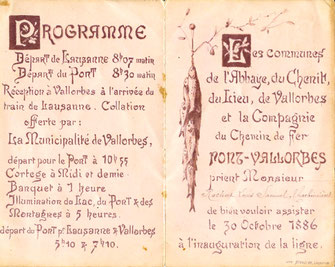 PROGRAMME
Départ de Lausanne 8h07 matin
Départ du Pont 8h30 matin
Réception à Vallorbes à l'arrivée du
train de Lausanne. Collation
offerte par :
La Municipalité de Vallorbes,
départ pour le Pont à 10h55
Cortège à Midi et demie.
Banquet à 1 heure
Illumination du Lac, du Pont & des
Montagnes à 5 heures.
départ du Pont pr Lausanne & Vallorbes
5h10 & 7h10.
Les Communes
de l'Abbaye, du Chenit,
du Lieu, de Vallorbes
et la Compagnie
du Chemin de Fer
PONT-VALLORBES
prient Monsieur
de bien vouloir assister
le 30 Octobre 1886
à l'inauguration de la ligne.